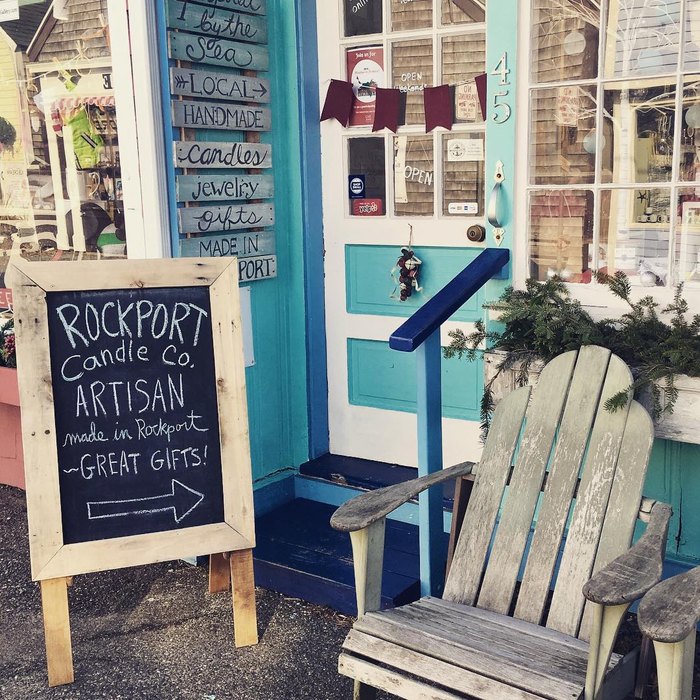 I by the
Sea
LOCAL
HANDMADE
candles
jewelry
gifts
MADE IN
PORT
45
OPEN
OPEN
ROCKPORT
Candle Co.
ARTISAN
made in Rockport
~GREAT GIFTS!